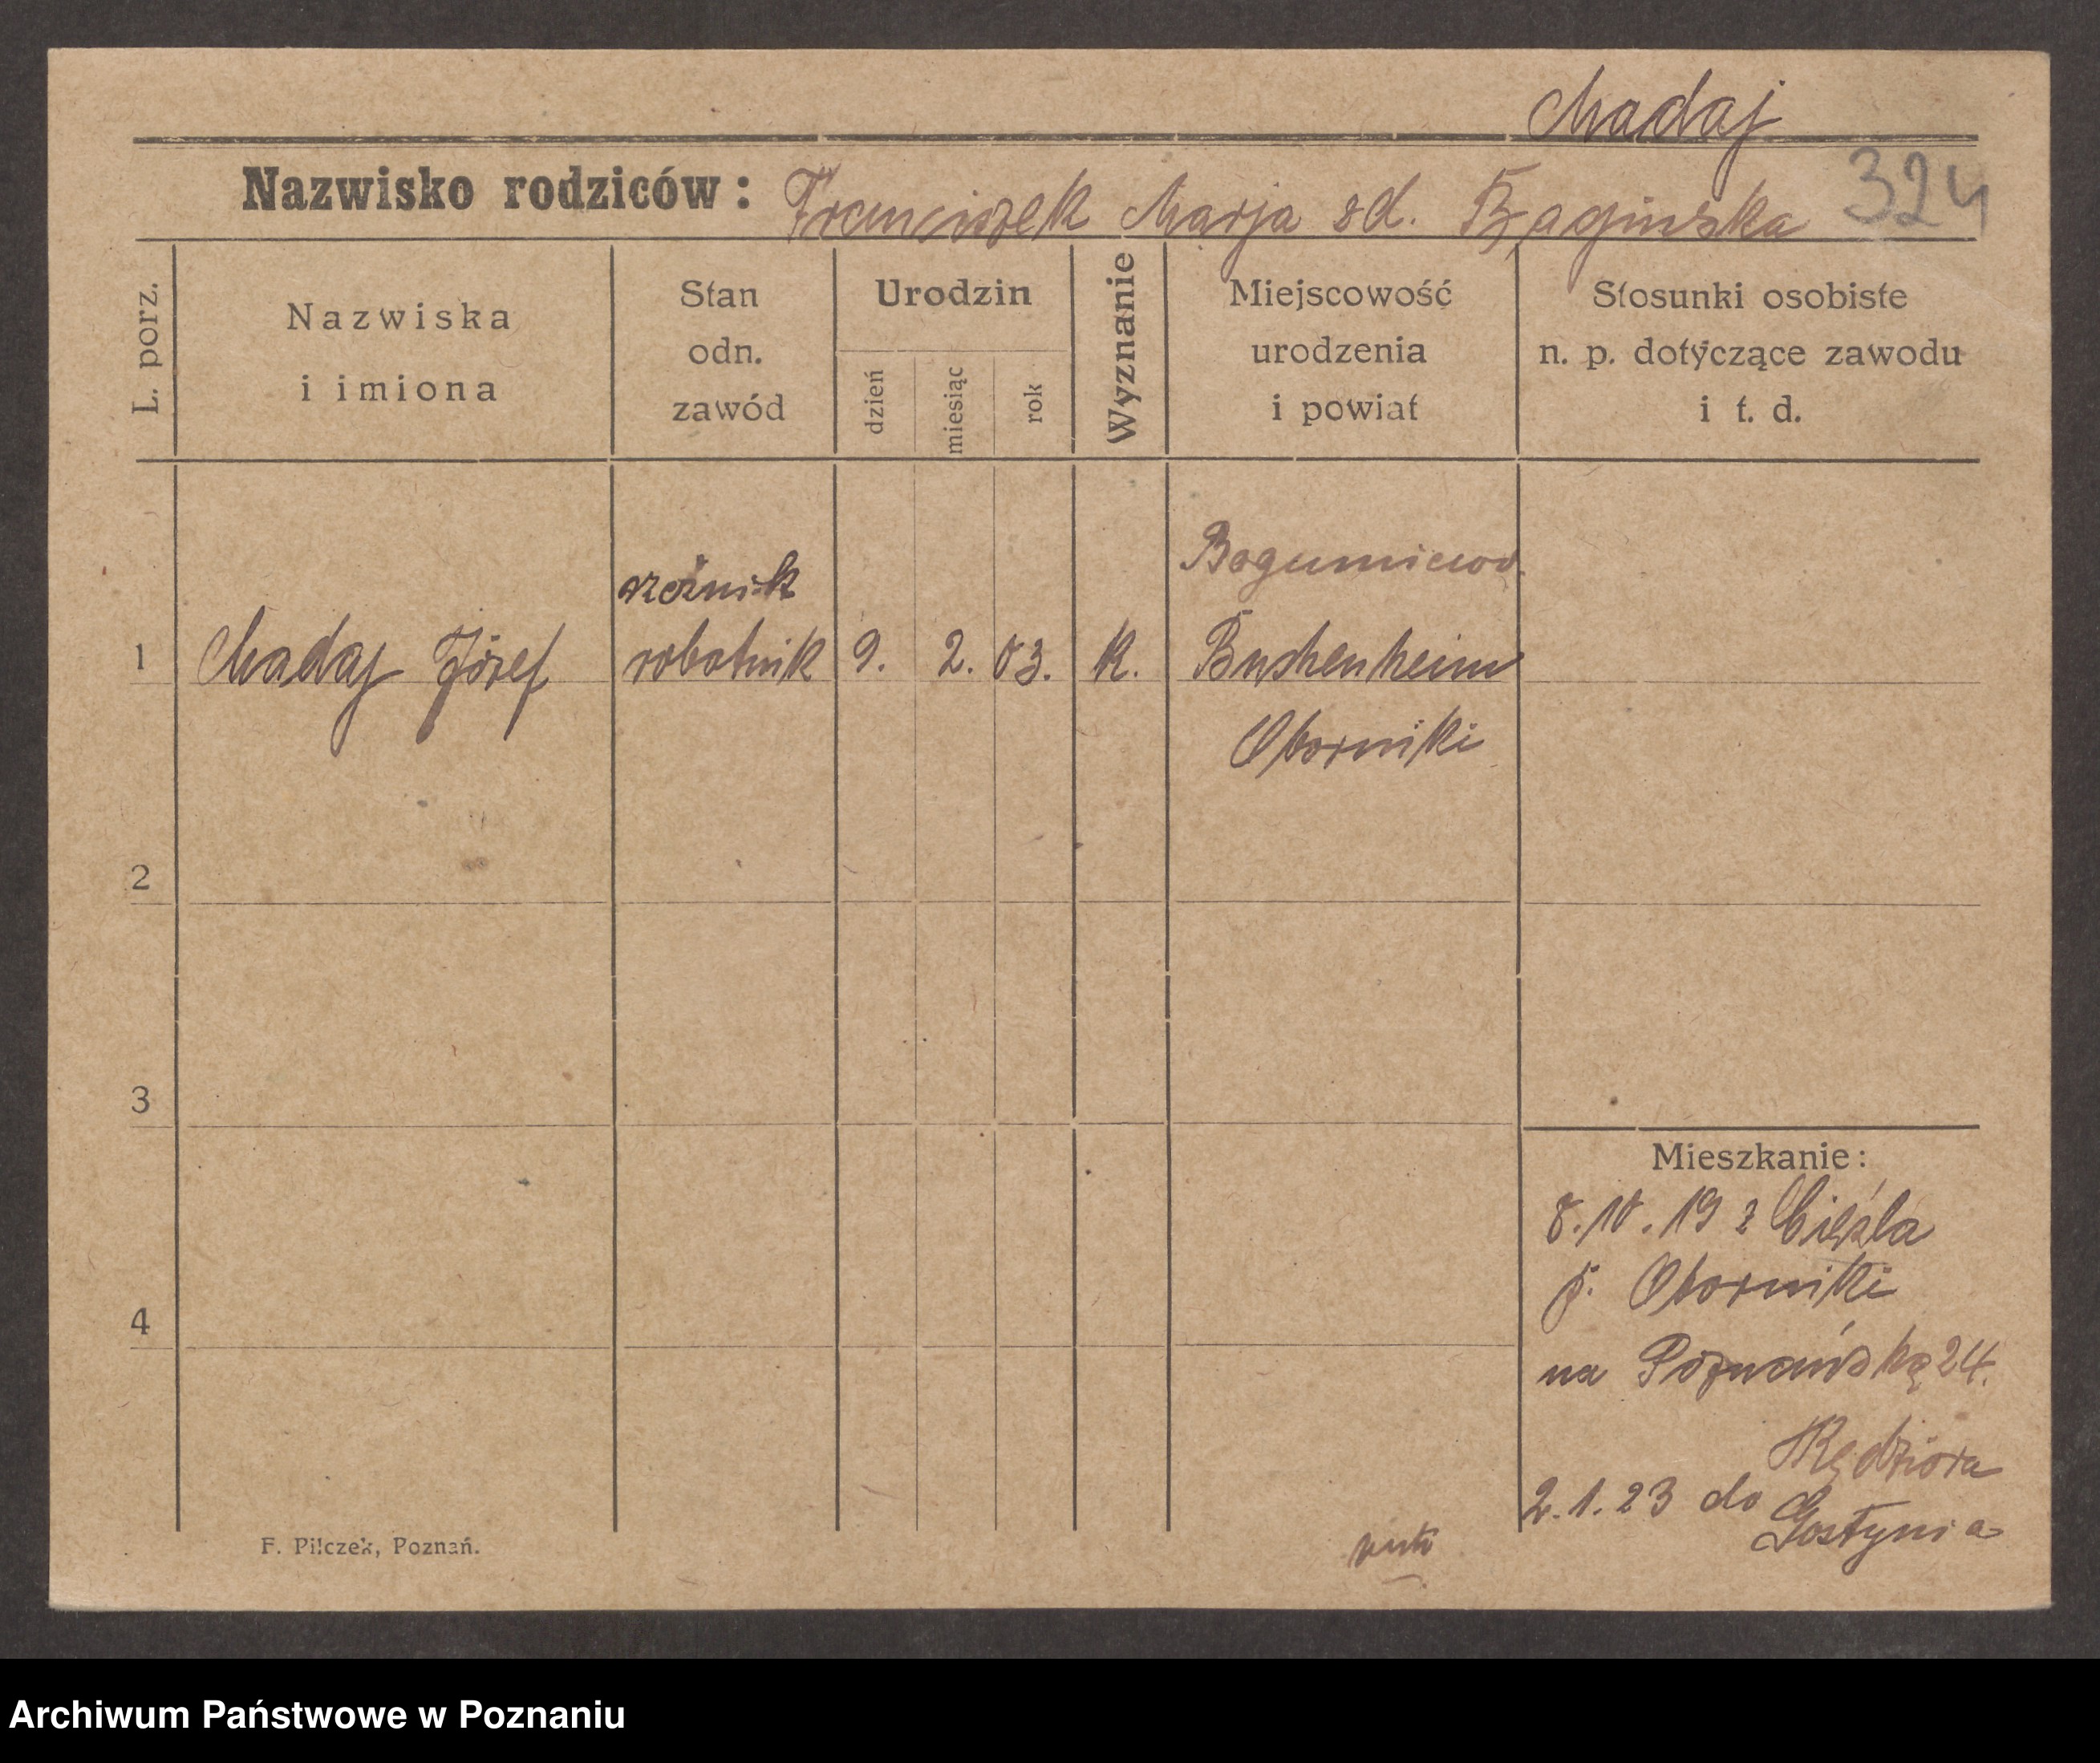 Madaj
Nazwisko rodziców: Franciszek Marja zd. Baginska 324
L. porz.
Nazwiska
i imiona
Stan
odn.
zawód
Urodzin
dzień
miesiąc
rok
Wyznanie
Miejscowość
urodzenia
i powiat
Stosunki osobiste
n. p. dotyczące zawodu
i t. d.
rzeźnik
1 Madaj Józef robotnik 9. 2. 03. k.
Oborniki
2
3
4
Mieszkanie:
8.10.19 z Cieśla
p. Oborniki
na Poznańską 24.
Kędziora
2.1.23 do Gostynia
F. Pilczek, Poznań.
Archiwum Państwowe w Poznaniu